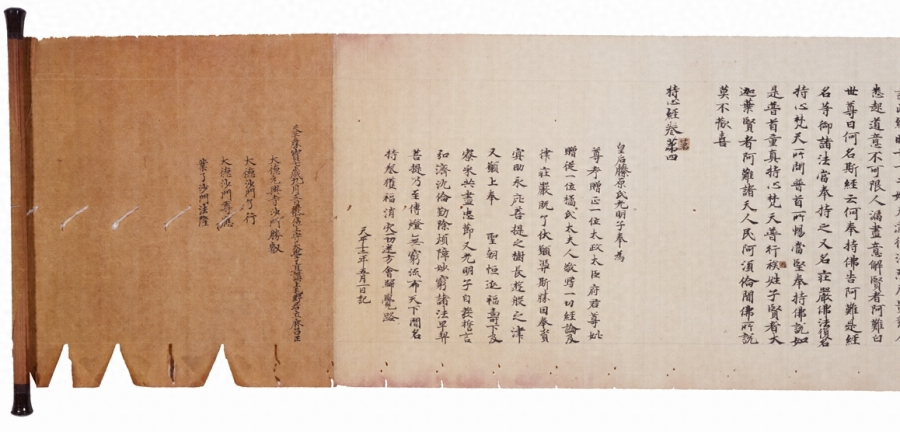 悉起道意不可限人漏盡意解賢者阿難白
世尊曰何名斯經云何奉持佛告阿難是經
名等御諸法當奉持之又名莊嚴佛法復名
持心梵天所問普首所暢當堅奉持佛說如
是普首童真持心梵天普行族姓子賢者大
迦葉賢者阿難諸天人民阿須倫聞佛所說
莫不歡喜
持心經卷第四
皇后藤原氏光明子奉為
尊考贈正一位太政太臣府君尊妣
贈從一位橘氏太夫人敬寫一切經論及
律莊嚴既了伏願憑斯勝因奉資
冥助永庇菩提之樹長遊般之津
又願上奉 聖朝恒延福壽下及
寮采共盡忠節又光明子自發誓言
弘濟沉倫勤除煩障妙窮諸法早契
菩提乃至傳燈無窮流布天下聞名
持卷獲福消灾一切迷方會歸覺路
天平十二年五月一日記
大德元興寺沙門勝叡
大德沙門了行
大德沙門
業了沙門法隆